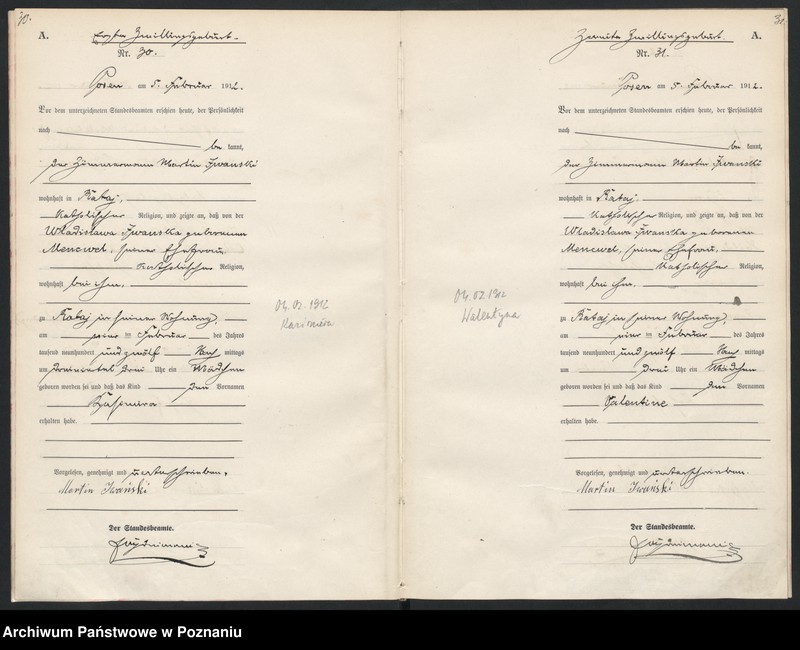 30.
A. Erste Zwillingsgeburt.
Nr. 30.
Posen am 5. Februar 1912.
Vor dem unterzeichneten Standesbeamten erschien heute, der Persönlichkeit
nach be kannt,
der Zimmermann Martin Iwanski
wohnhaft in Rataj,
katholischer Religion, und zeigte an, daß von der
Wladislawa Iwanska geborenen
Mencwel, seiner Ehefrau
katholischer Religion,
wohnhaft bei ihm,
zu Rataj in seiner Wohnung,
am vier ten Februar des Jahres
tausend neunhundert und zwölf Nach mittags
um dreiviertel drei Uhr ein Mädchen
geboren worden sei und daß das Kind den Vornamen
Kasimira
erhalten habe.
Vorgelesen, genehmigt und unterschrieben.
Martin Iwański
Der Standesbeamte.
04.02.1912
Kazimiera
Zweite Zwillingsgeburt. A.
Nr. 31.
Posen am 5. Februar 1912.
Vor dem unterzeichneten Standesbeamten erschien heute, der Persönlichkeit
nach be kannt,
der Zimmermann Martin Iwanski
wohnhaft in Rataj
katholischer Religion, und zeigte an, daß von der
Wladislawa Iwanska geborenen
Mencwel, seiner Ehefrau,
katholischer Religion,
wohnhaft bei ihm,
zu Rataj in seiner Wohnung,
am vier ten Februar des Jahres
tausend neunhundert und zwölf Nach mittags
um drei Uhr ein Mädchen
geboren worden sei und daß das Kind den Vornamen
Valentine
erhalten habe.
Vorgelesen, genehmigt und unterschrieben.
Martin Iwański
Der Standesbeamte.
04.02.1912
Walentyna
Archiwum Państwowe w Poznaniu